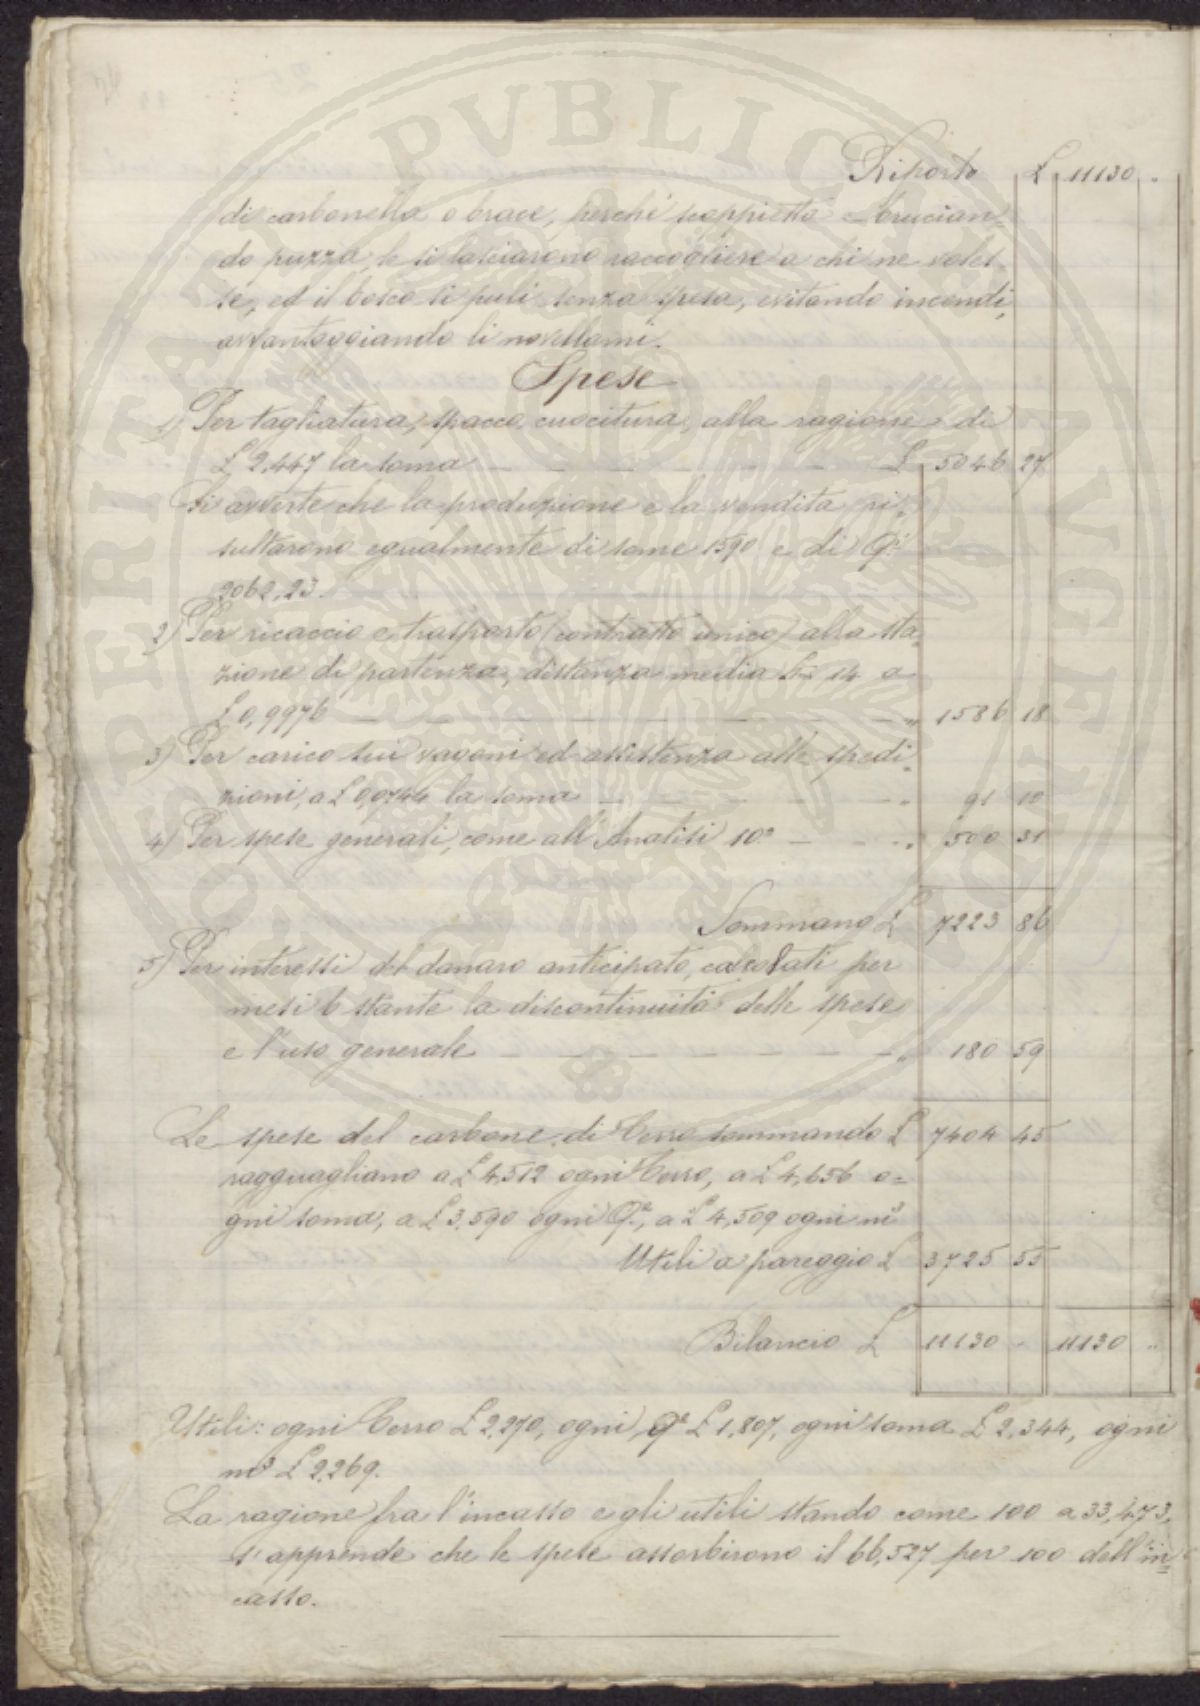 Riporto £ 11130 "
di carbonella o brace, perchè scoppietta e brucian=
do puzza, le si lasciarono raccogliere a chi ne voles=
se, ed il bosco si pulì senza spesa, evitando incendi,
avvantaggiando li novellami.
Spese
1) Per tagliatura, spacco, cuocitura, alla ragione di
£ 2,447 la soma — — — — — £ 5046 27
Si avverte che la produzione e la vendita ri=
sultarono egualmente di some 1590 e di Q.li
2062,23.
2) Per ricaccio e trasporto (contratto unico) alla sta=
zione di partenza, distanza media 14 a
£ 0,9976 — — — — — — — " 1586 18
3) Per carico sui vagoni ed assistenza alle spedi=
zioni, a £ 0,0744 la soma — — — — " 91 10
4) Per spese generali, come all'Analisi 10a — — — " 500 31
Sommano £ 7223 86
5) Per interessi del danaro anticipato, calcolati per
mesi 6 stante la discontinuità delle spese
e l'uso generale — — — — — — — " 180 59
Le spese del carbone di Cerro sommando £ 7404 45
ragguagliano a £ 4,512 ogni Cerro, a £ 4,656 o=
gni soma, a £ 3,590 ogni Q.le, a £ 4,509 ogni m3
Utili a pareggio £ 3725 55
Bilancio £ 11130 " 11130 "
Utili: ogni Cerro £ 2,270, ogni Q.le £ 1,807, ogni soma £ 2,344, ogni
m3 £ 2,269.
La ragione fra l'incasso e gli utili stando come 100 a 33,473,
s'apprende che le spese assorbirono il 66,527 per 100 dell'in=
casso.